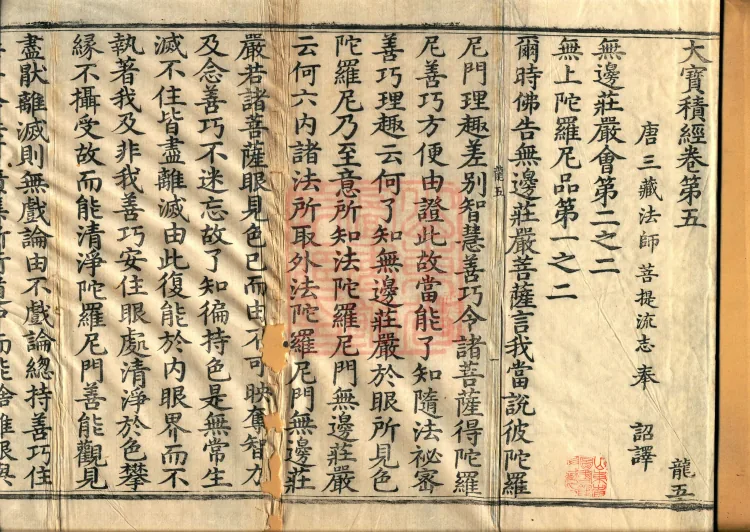 大寶積經卷第五 龍五
唐三藏法師菩提流志奉 詔譯
無邊莊嚴會第二之二
無上陀羅尼品第一之二
爾時佛告無邊莊嚴菩薩言我當說彼陀羅
龍五
尼門理趣差別智慧善巧令諸菩薩得陀羅
尼善巧方便由證此故當能了知隨法祕密
善巧理趣云何了知無邊莊嚴於眼所見色
陀羅尼乃至意所知法陀羅尼門無邊莊嚴
云何六內諸法所取外法陀羅尼門無邊莊
嚴若諸菩薩眼見色已而由不可映奪智力
及念善巧不迷忘故了知徧持色是無常生
滅不住皆盡離滅由此復能於內眼界而不
執著我及非我善巧安住眼處清淨於色攀
緣不攝受故而能清淨陀羅尼門善能觀見
盡猒離滅則無戲論由不戲論總持善巧住